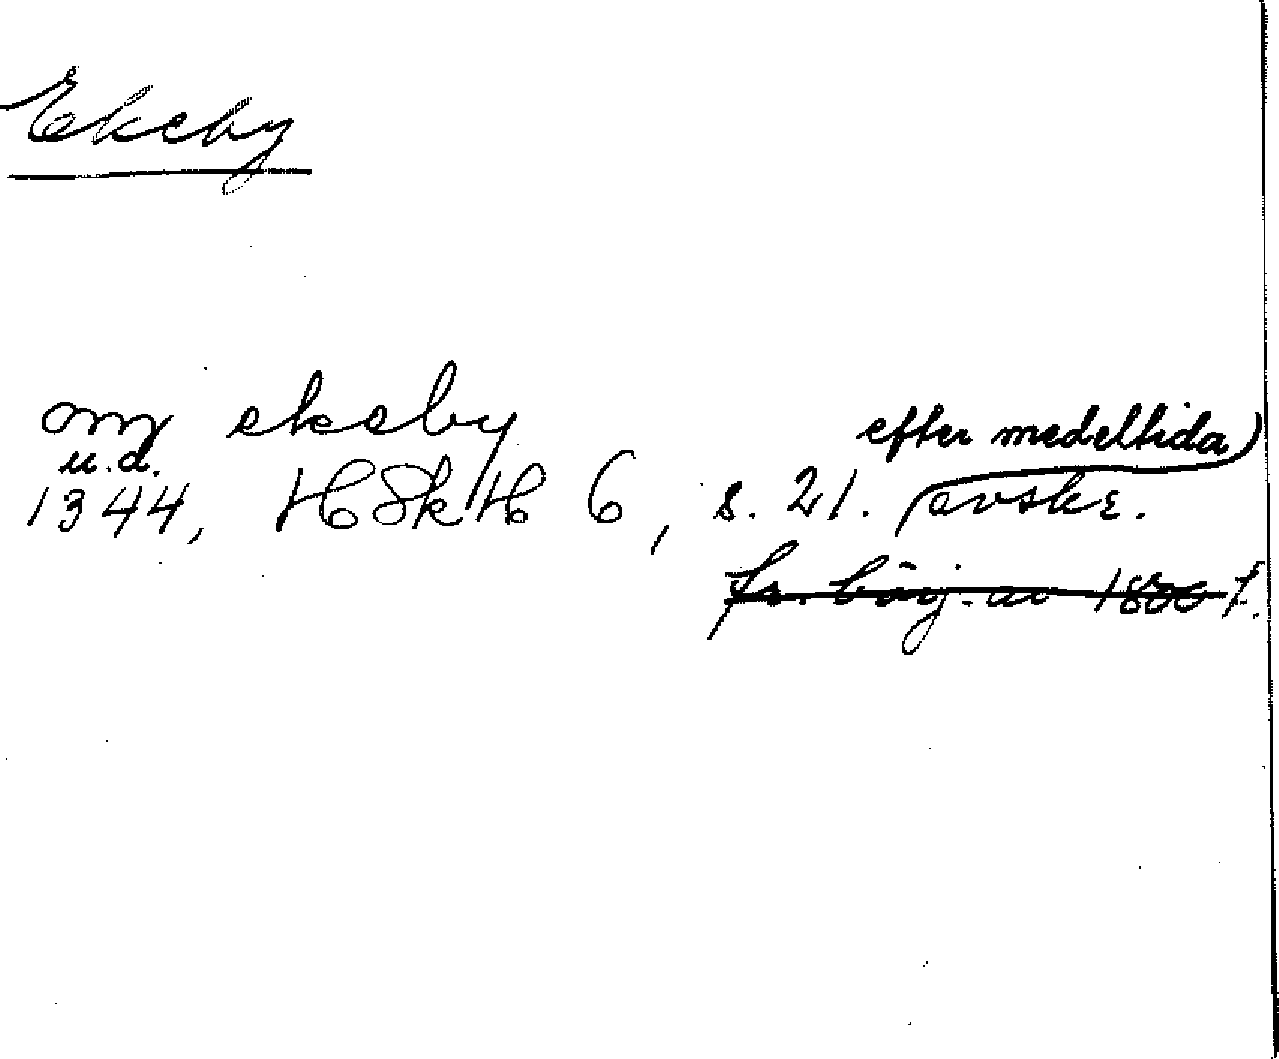 Ekeby
om ekeby
u.d.
1344, HSkH 6, s. 21. efter medeltida avskr.
fr. börj. av 1800 t.